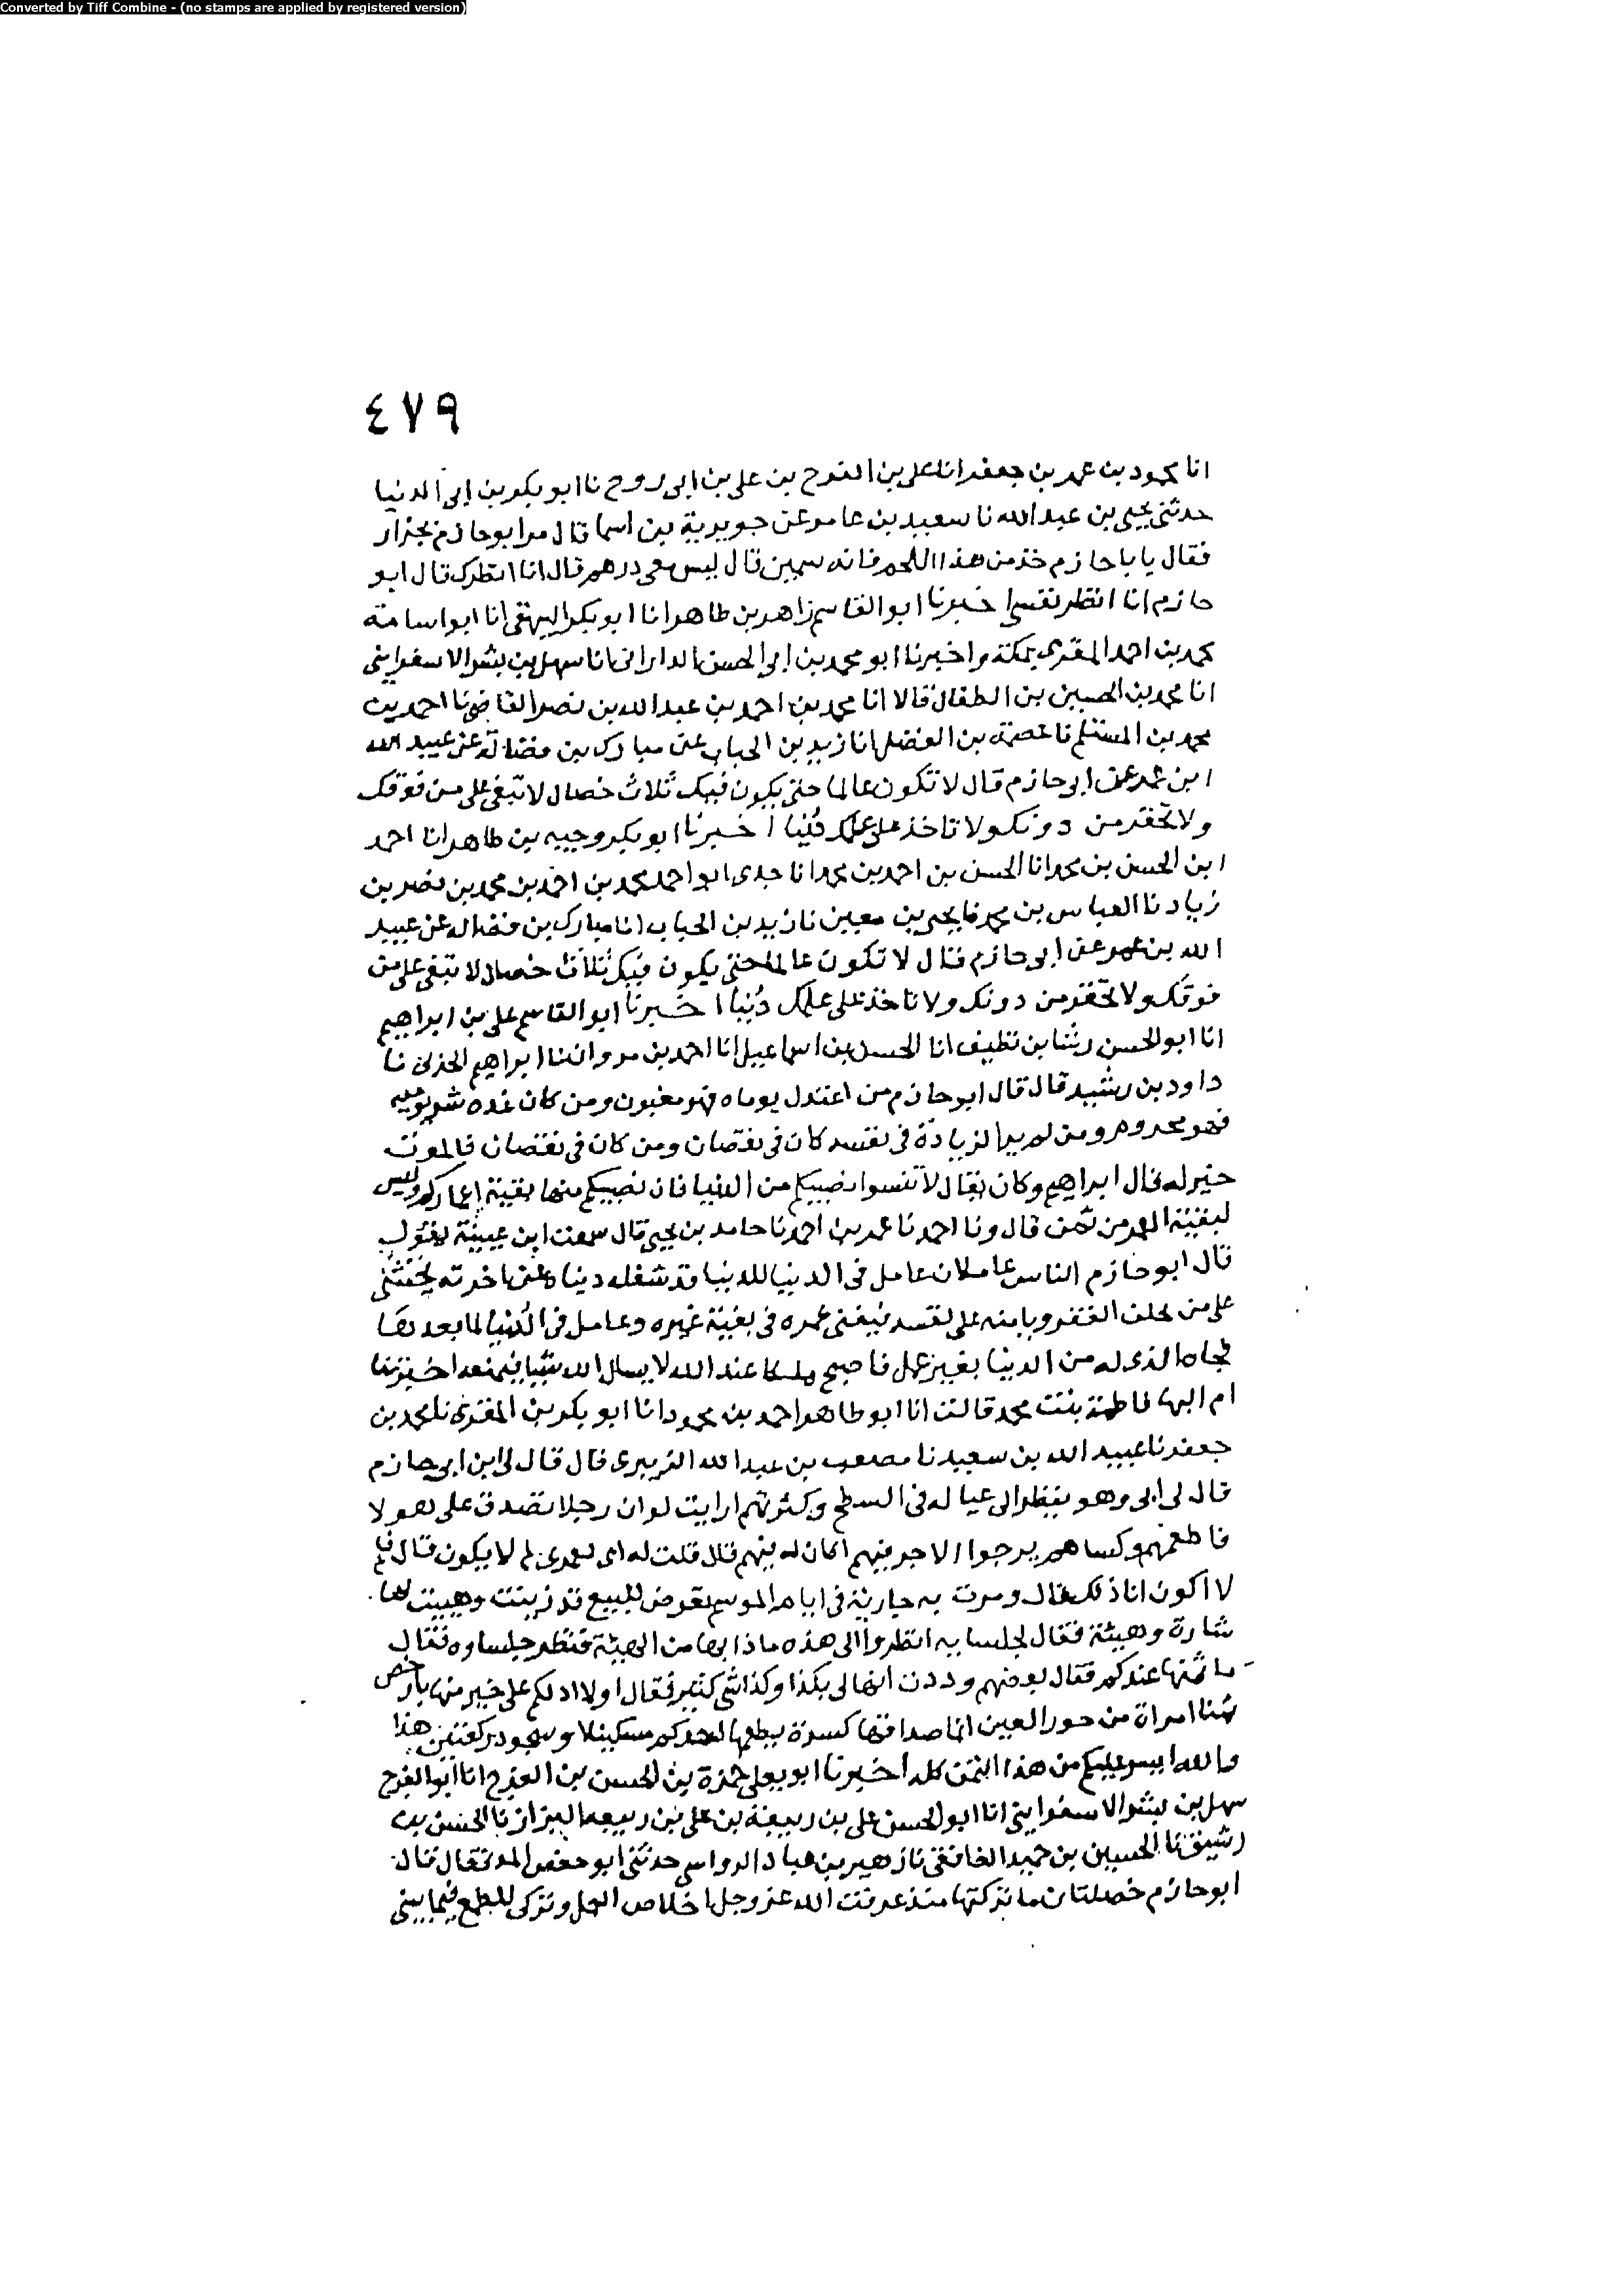 Converted by Tiff Combine - (no stamps are applied by registered version)
٤٧٩
انا محمود بن عمر بن جعفر انا على بن الفرج بن على بن ابى روح نا ابو بكر بن ابى الدنيا
حدثنى يحيى بن عبد الله نا سعيد بن عامر عن جويرية بن اسما قال مر ابو حازم بجزار
فقال يا با حازم خذ من هذا اللحم فانه سمين قال ليس معى درهم قال انا انظرك قال ابو
حازم انا انظر نفسى اخبرنا ابو القاسم زاهر بن طاهر انا ابو بكر البيهقى انا ابو اسامة
محمد بن احمد المقرى بمكة واخبرنا ابو محمد بن ابى الحسن الدارانى انا سهل بن بشر الاسفراينى
انا محمد بن الحسين بن الطفال قالا انا محمد بن احمد بن عبد الله بن نصر القاضى نا احمد بن
محمد بن المستلم نا عصمة بن الفضل انا زيد بن الحباب عن مبارك بن فضالة عن عبيد الله
ابن عمر عن ابى حازم قال لا تكون عالما حتى يكون فيك ثلاث خصال لا تبغى على من فوقك
ولا تحقر من دونك ولا تاخذ على علمك دنيا اخبرنا ابو بكر وجيه بن طاهر انا احمد
ابن الحسن بن محمد انا الحسن بن احمد بن محمد انا جدى ابو احمد محمد بن احمد بن محمد بن نصر بن
زياد نا العباس بن محمد نا يحيى بن معين نا زيد بن الحباب انا مبارك بن فضاله عن عبيد
الله بن عمر عن ابى حازم قال لا تكون عالما حتى يكون فيك ثلاث خصال لا تبغى على من
فوقك ولا تحقر من دونك ولا تاخذ على علمك دنيا اخبرنا ابو القاسم على بن ابراهيم
انا ابو الحسن رشا بن نظيف انا الحسن بن اسماعيل انا احمد بن مروان نا ابراهيم الحربى نا
داود بن رشيد قال قال ابو حازم من اعتدل يوماه فهو مغبون ومن كان غده شر يوميه
فهو محروم ومن لم ير الزيادة فى نفسه كان فى نقصان ومن كان فى نقصان فالموت
خير له قال ابراهيم وكان يقال لا تنسوا نصيبكم من الدنيا فان نصيبكم منها بقية اعماركم وليس
لبقية العمر من ثمن قال ونا احمد نا عمر بن احمد نا حامد بن يحيى قال سمعت ابن عيينة يقول
قال ابو حازم الناس عاملان عامل فى الدنيا للدنيا قد شغله دنياه عن اخرته يخشى
على من يخلف الفقر ويامنه على نفسه فيفنى عمره فى بغية غيره وعامل فى الدنيا لما بعدها
فجاه الذى له من الدنيا بغير عمل فاصبح ملكا عند الله لا يسال الله شيا فيمنعه اخبرتنا
ام البها فاطمة بنت محمد قالت انا ابو طاهر احمد بن محمود انا ابو بكر بن المقرى نا محمد بن
جعفر نا عبيد الله بن سعيد نا مصعب بن عبد الله الزبيرى قال قال لى ابن ابى حازم
قال لى ابى وهو ينظر الى عياله فى السطح وكثرتهم ارايت لو ان رجلا تصدق على هولا
فاطعمهم وكساهم يرجوا الاجر فيهم اكان له فيهم قال قلت له اى لعمرى لم لا يكون قال فلم
لا اكون انا ذلك قال ومرت به جارية فى ايام الموسم تعرض للبيع قد زينت وهييت لها
شارة وهيئة فقال لجلسايه انظروا الى هذه ماذا بها من الهيئة فنظر جلساوه فقال
ما ثمنها عندكم فقال بعضهم وددت انها لى بكذا وكذا شى كثير فقال اولا ادلكم على خير منها بارخص
ثمنا امراة من حور العين انما صداقها كسرة يطعمها احدكم مسكينا او سجود ركعتين هذا
والله ايسر عليكم من هذا الثمن كله اخبرنا ابو يعلى حمزة بن الحسن بن الفرج انا ابو الفرج
سهل بن بشر الاسفراينى انا ابو الحسن على بن ربيعة بن على بن ربيعه البزاز نا الحسن بن
رشيق نا الحسين بن حميد نا زهير بن عباد الرواسى حدثنى ابو حفص قال قال
ابو حازم خصلتان ما تركتهما منذ عرفت الله عز وجل اخلاص العمل وتركى للطمع فيما بينى